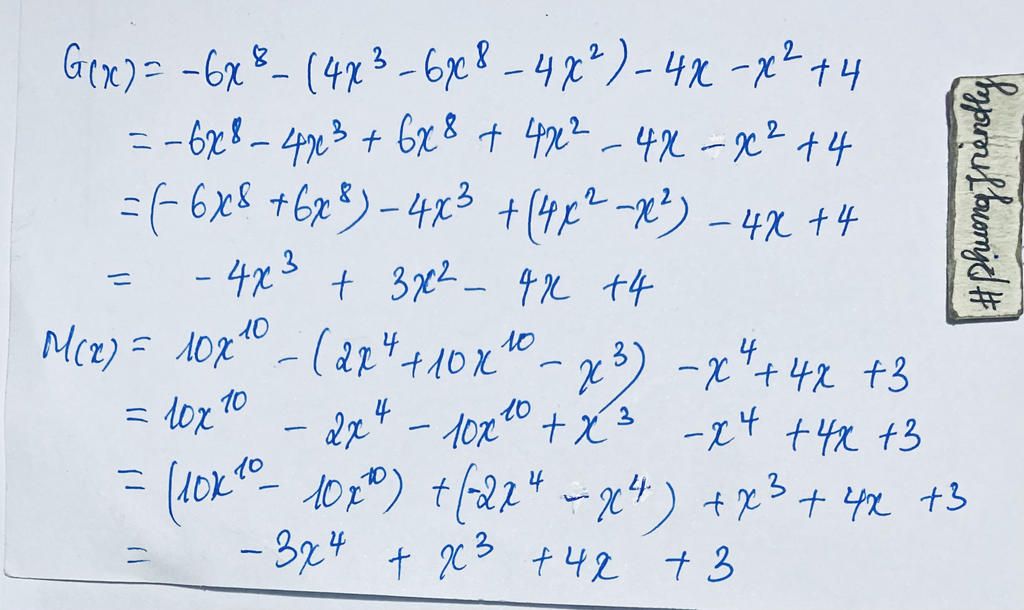 G(x) = -6x⁸ - (4x³ - 6x⁸ - 4x²) - 4x - x² + 4
= -6x⁸ - 4x³ + 6x⁸ + 4x² - 4x - x² + 4
= (-6x⁸ + 6x⁸) - 4x³ + (4x² - x²) - 4x + 4
= - 4x³ + 3x² - 4x + 4
M(x) = 10x¹⁰ - (2x⁴ + 10x¹⁰ - x³) - x⁴ + 4x + 3
= 10x¹⁰ - 2x⁴ - 10x¹⁰ + x³ - x⁴ + 4x + 3
= (10x¹⁰ - 10x¹⁰) + (-2x⁴ - x⁴) + x³ + 4x + 3
= - 3x⁴ + x³ + 4x + 3
#Phuongfriendly